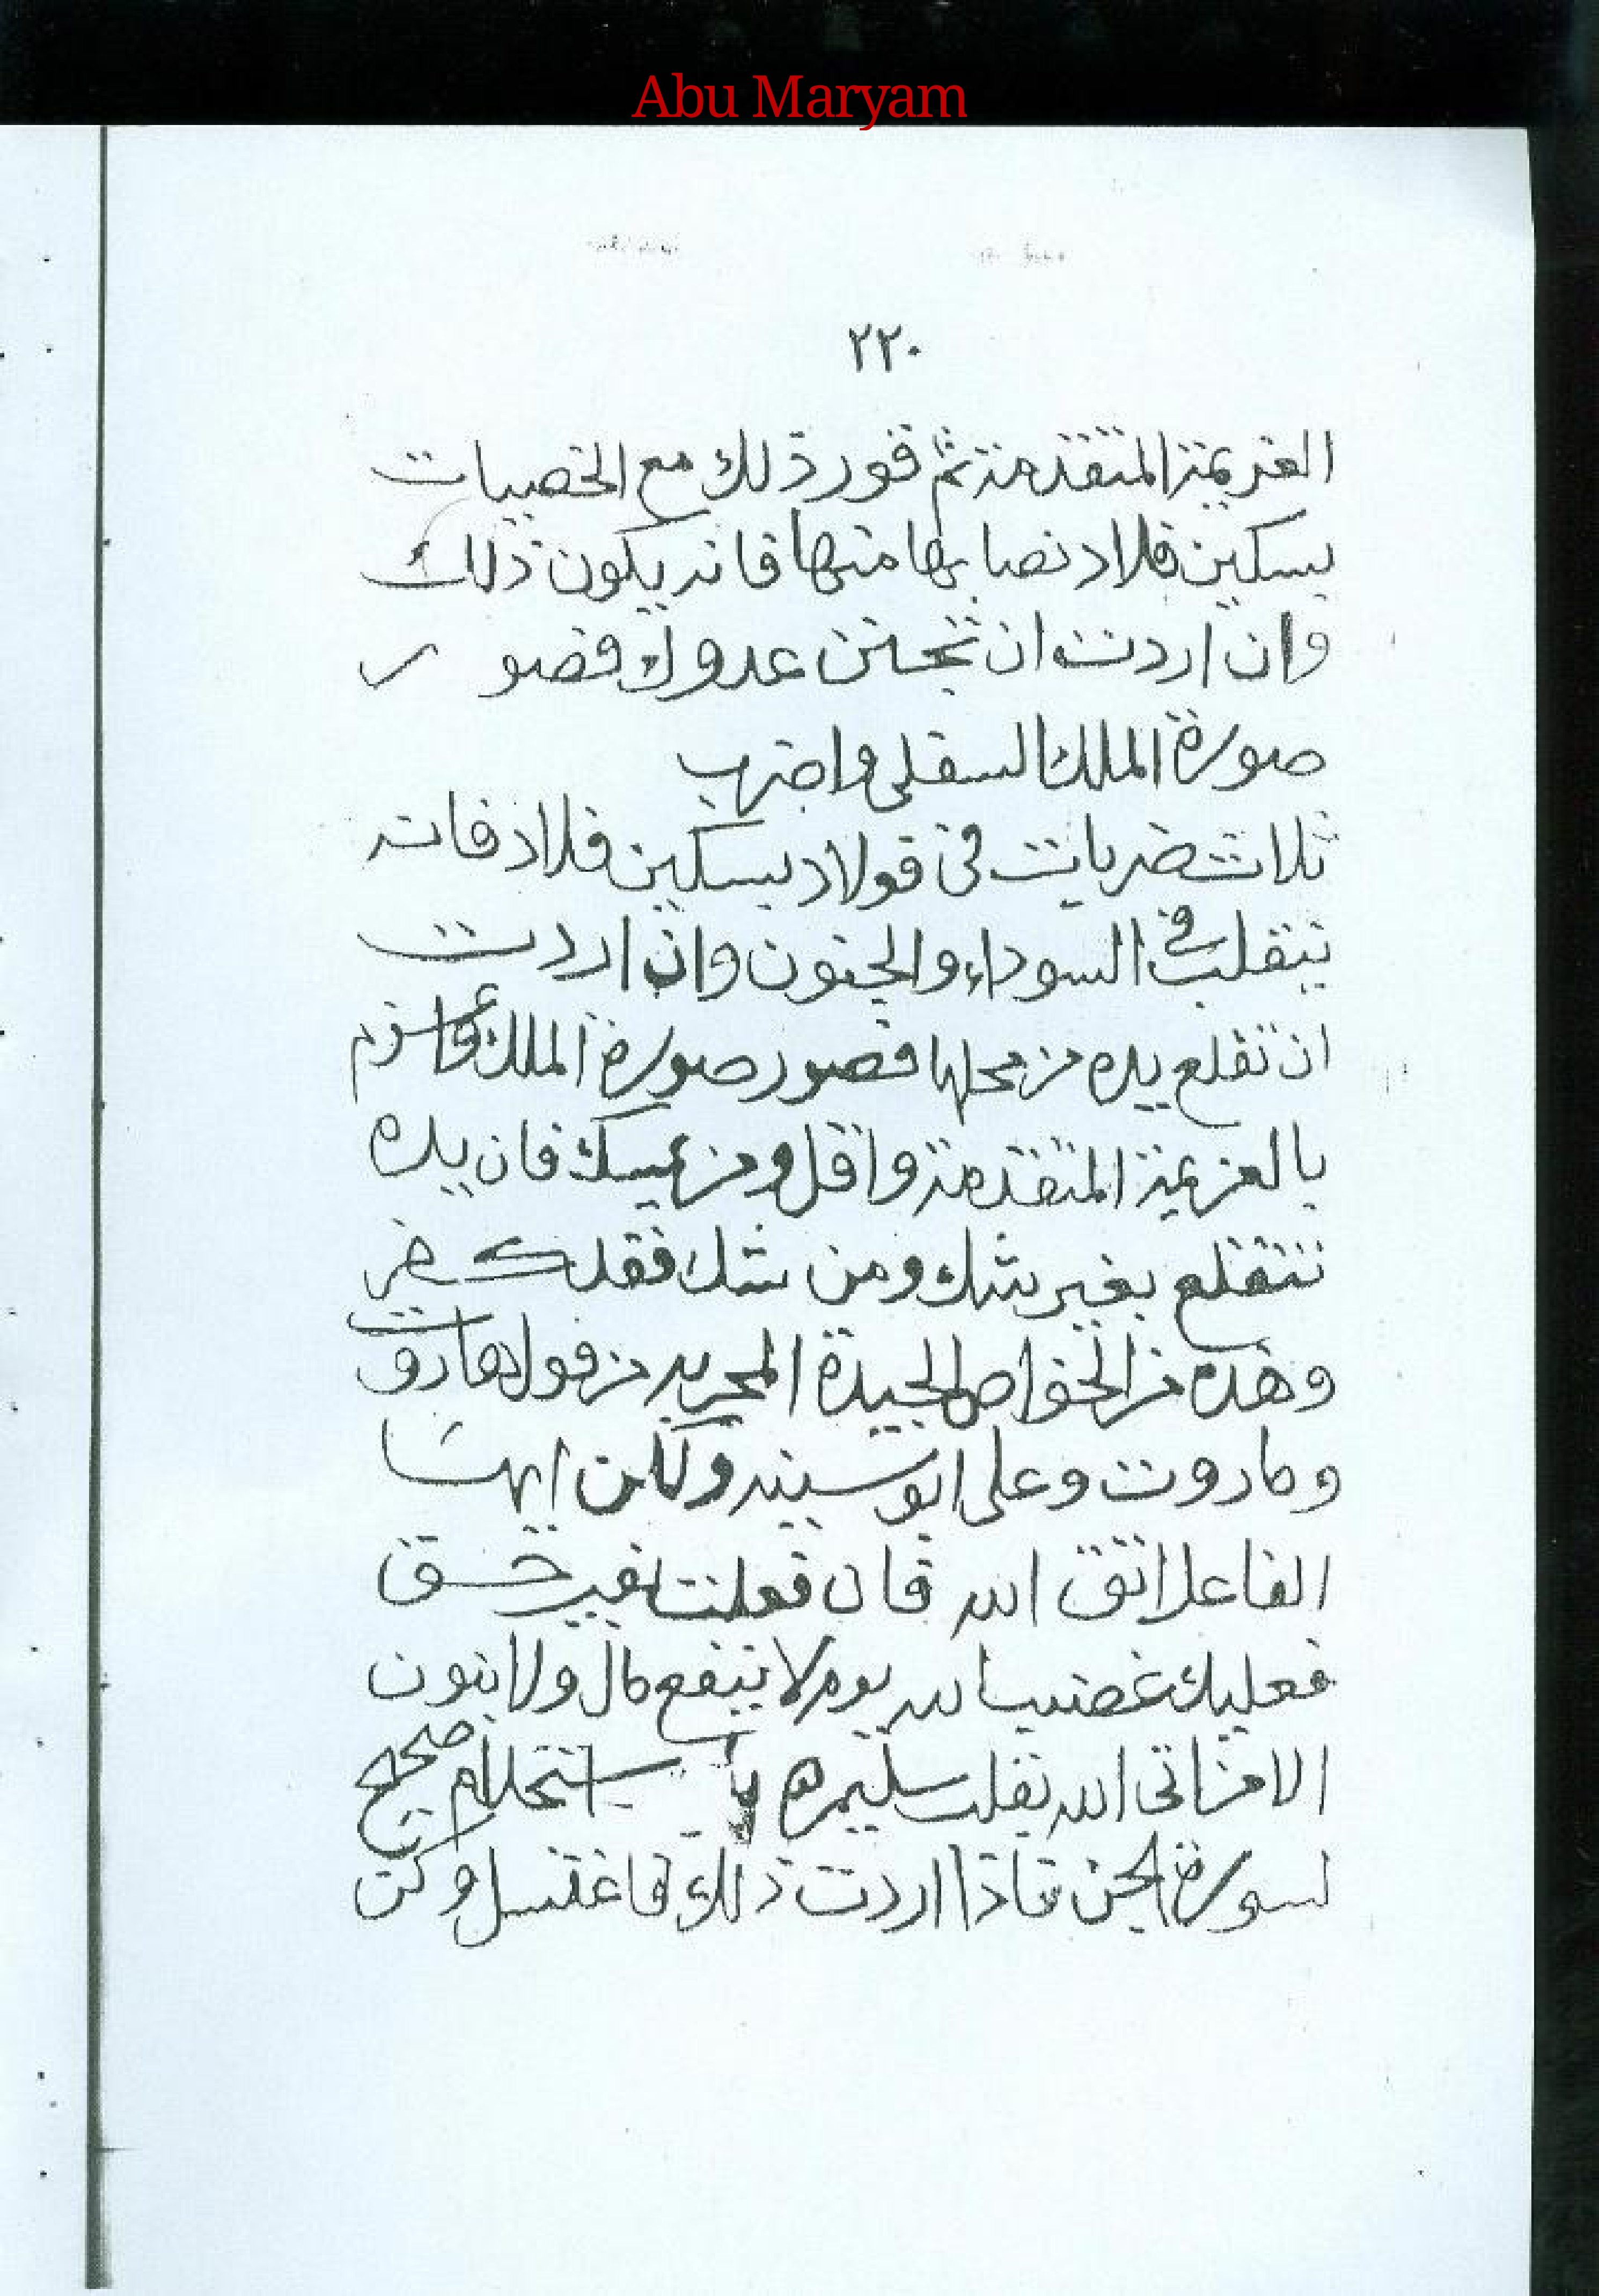 Abu Maryam
٢٢٠
العزيمة المتقدمة ثم قور ذلك مع الخصيات
بسكين فلاد نصابها منها فانه يكون ذلك
وان اردت ان تجنن عدوك فصور
صورة الملك السفلى واضرب
ثلاث ضربات فى فولاد بسكين فلاد فانه
ينقلب فى السوداء والجنون وان اردت
ان تقلع يده من محلها فصور صورة الملك وأعزم
بالعزيمة المتقدمة واقل ومن يمسك فان يده
تنقلع بغير شك ومن شك فقد كفر
وهذه من الخواص الجيدة المجربه من قول هاروت
وماروت وعلى ابو سينه ولكن ايها
الفاعل اتق الله فان فعلت بغير حق
فعليك غضب الله يوم لا ينفع مال ولا بنون
الا من اتى الله بقلب سليم هـ باب استخدام صحيح
لسورة الجن فاذا اردت ذلك فاغتسل وكن